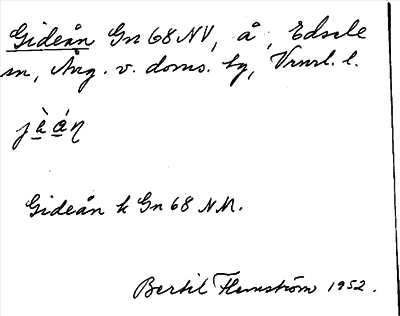 Gideån Gn 68 NV, å, Edsele
sn, Ång. v. doms. hg, Vrnrl. l.
jàán
Gideån k Gn 68 NM.
Bertil Flemström 1952.